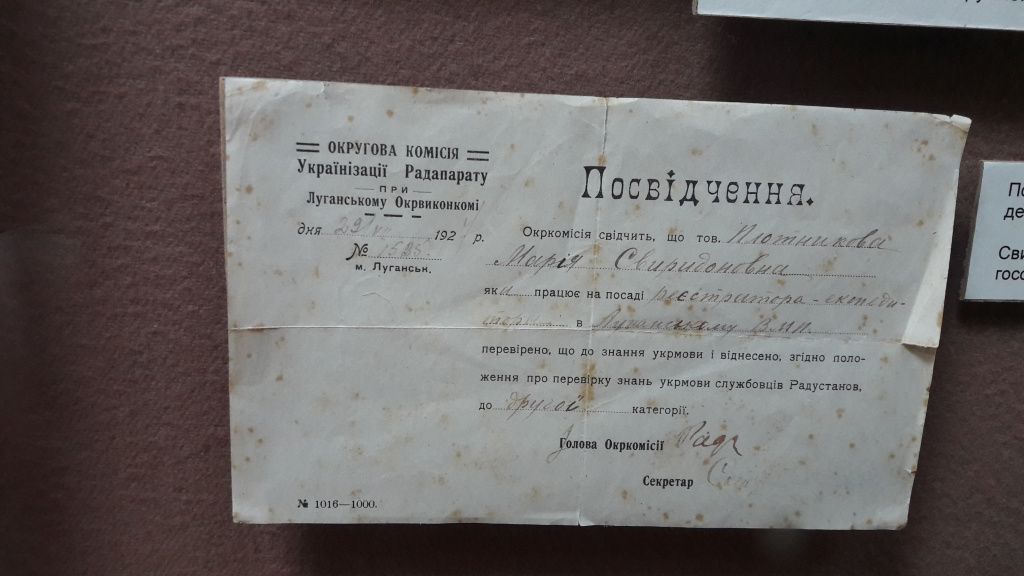 ОКРУГОВА КОМІСІЯ
Українізації Радапарату
ПРИ
Луганському Окрвиконкомі
дня 29 192 р.
№
м. Луганськ.
Посвідчення.
Окркомісія свідчить, що тов. Плотникова
Марія Свиридоновна
як працює на посаді реєстратора-експеди-
тора в Луганському
перевірено, що до знання укрмови і віднесено, згідно поло-
ження про перевірку знань укрмови службовців Радустанов,
до другої категорії.
Голова Окркомісії
Секретар
№ 1016—1000.
По
де
Сви
гос